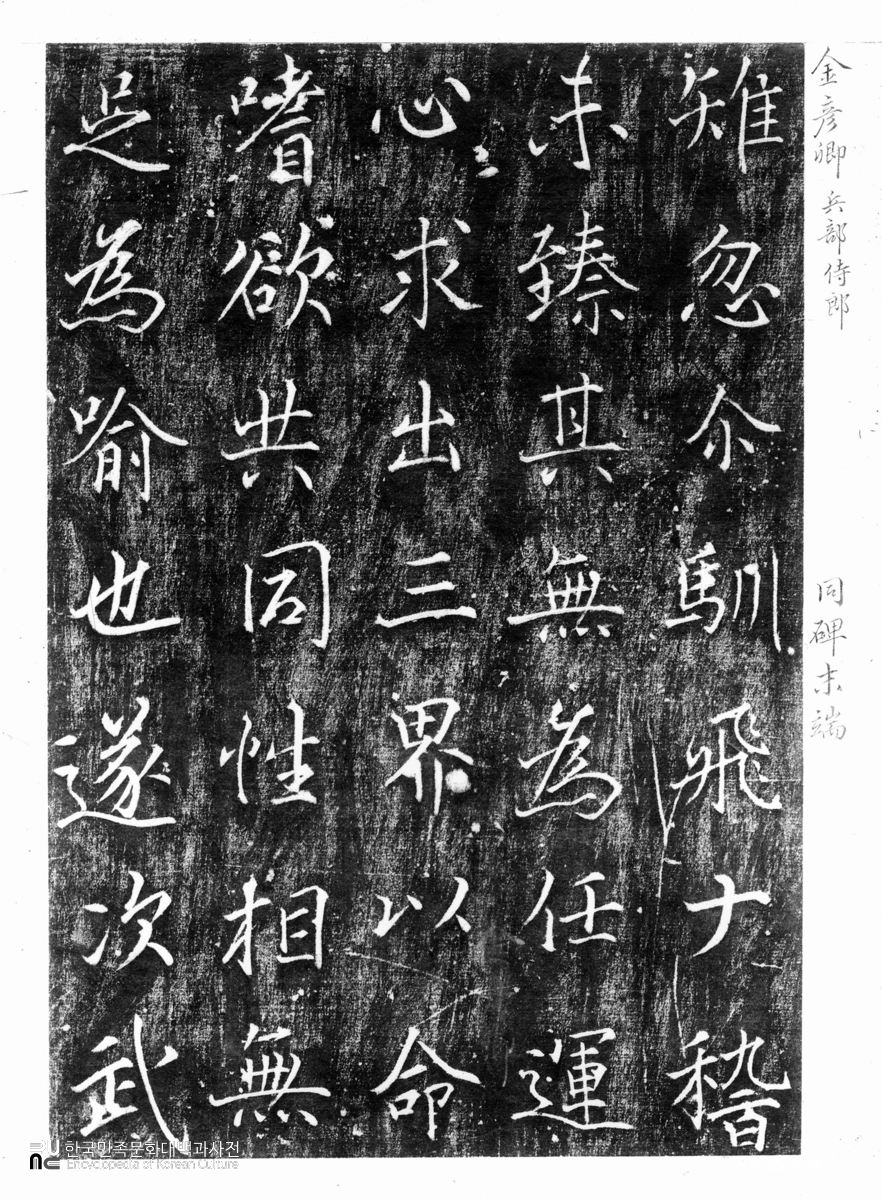 金彦卿 兵部侍郎 同碑末端
雉忽尒馴飛ナ稽
未臻其無為任運
心求出三界以命
嗜欲共同性相無
足為喻也遂次武
한국민족문화대백과사전
Encyclopedia of Korean Culture